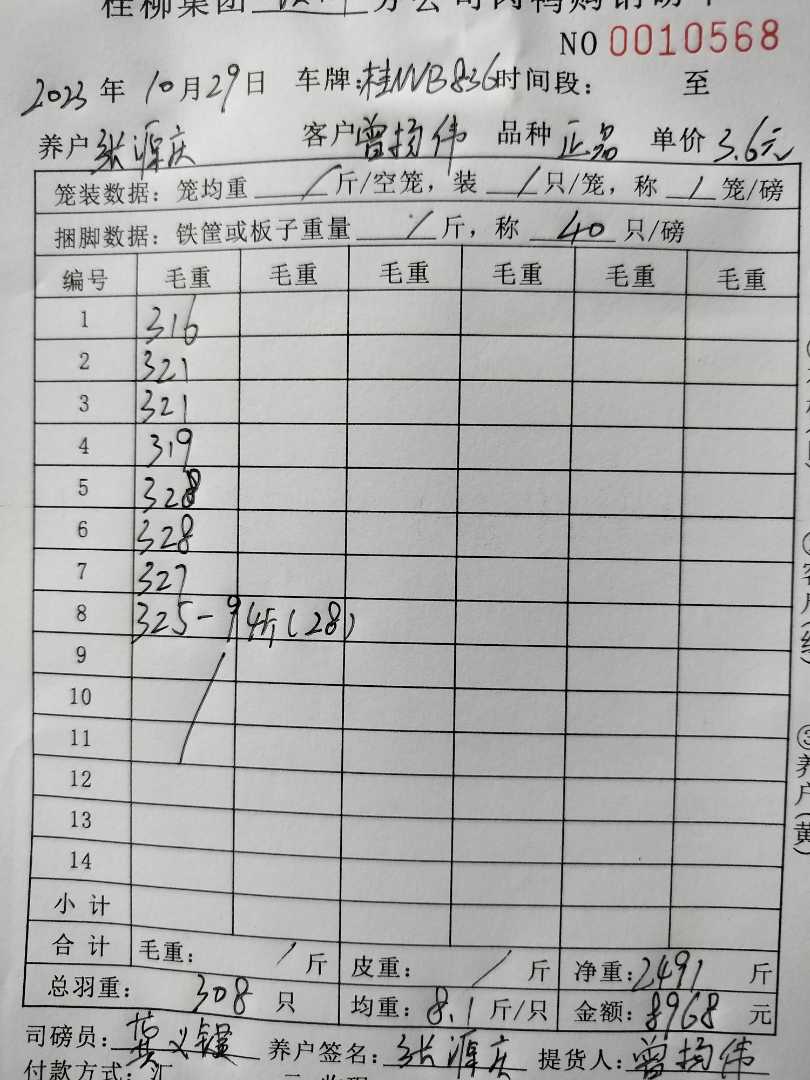 桂柳集团 分公司肉鸭购销磅单
NO 0010568
2023年10月29日 车牌:桂NVB836 时间段: 至
养户 张源庆 客户 曾扬伟 品种 正名 单价 3.6元
笼装数据: 笼均重 / 斤/空笼, 装 / 只/笼, 称 / 笼/磅
捆脚数据: 铁筐或板子重量 / 斤, 称 40 只/磅
编号 毛重 毛重 毛重 毛重 毛重 毛重
1 316
2 321
3 321
4 319
5 328
6 328
7 327
8 325-94斤(28)
9
10
11
12
13
14
小计
合计 毛重: / 斤 皮重: / 斤 净重: 2491 斤
总羽重: 308 只 均重: 8.1 斤/只 金额: 8968 元
司磅员: 黄义 养户签名: 张源庆 提货人: 曾扬伟
付款方式: 汇
客户(红)
③养户(黄)